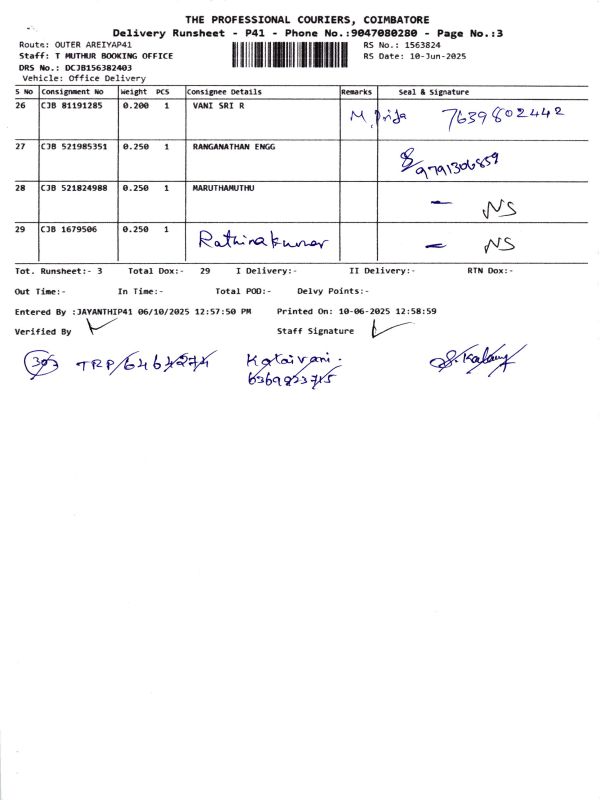 THE PROFESSIONAL COURIERS, COIMBATORE
Delivery Runsheet - P41 - Phone No.:9047080280 - Page No.:3
Route: OUTER AREIYAP41 RS No.: 1563824
Staff: T MUTHUR BOOKING OFFICE RS Date: 10-Jun-2025
DRS No.: DCJB156382403
Vehicle: Office Delivery
S No Consignment No Weight PCS Consignee Details Remarks Seal & Signature
26 CJB 81191285 0.200 1 VANI SRI R M. Priya 7639802442
27 CJB 521985351 0.250 1 RANGANATHAN ENGG 9791306859
28 CJB 521824988 0.250 1 MARUTHAMUTHU – NS
29 CJB 1679506 0.250 1 Rathinakumar – NS
Tot. Runsheet:- 3 Total Dox:- 29 I Delivery:- II Delivery:- RTN Dox:-
Out Time:- In Time:- Total POD:- Delvy Points:-
Entered By :JAYANTHIP41 06/10/2025 12:57:50 PM Printed On: 10-06-2025 12:58:59
Verified By Staff Signature
303 TRP/6464274 Kalaivani.
6369823715